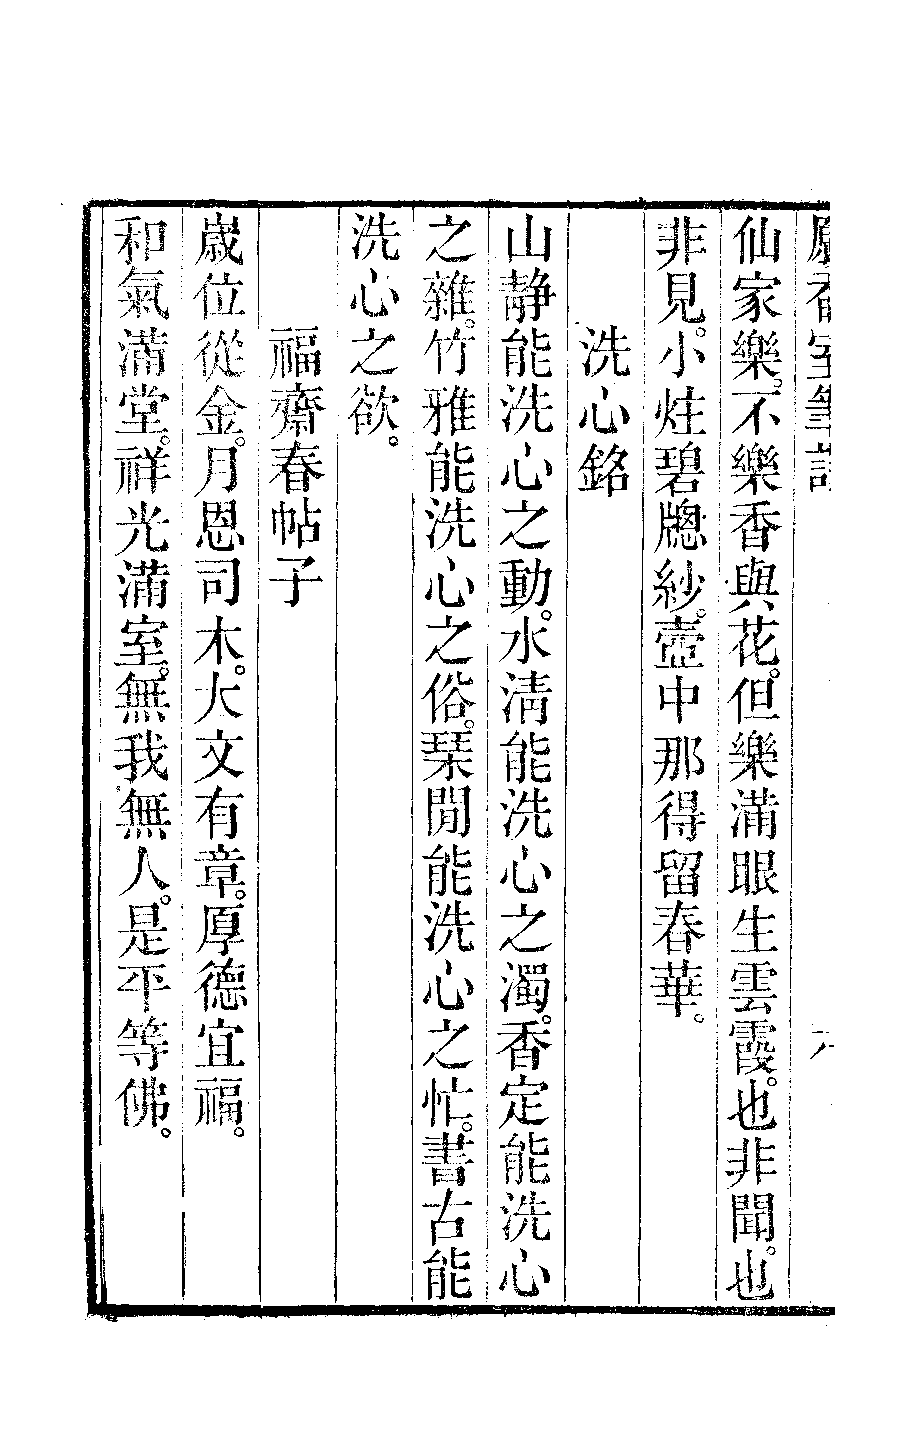 香室筆記
仙家樂。不樂香與花。但樂滿眼生雲霞。也非聞。也
非見。小炷碧牕紗。壺中那得留春華。
洗心銘
山靜能洗心之動。水淸能洗心之濁。香定能洗心
之雜。竹雅能洗心之俗。琹閒能洗心之忙。書古能
洗心之欲。
福齋春帖子
歲位從金。月恩司木。大文有章。厚德宜福。
和氣滿堂。祥光滿室。無我無人。是平等佛。